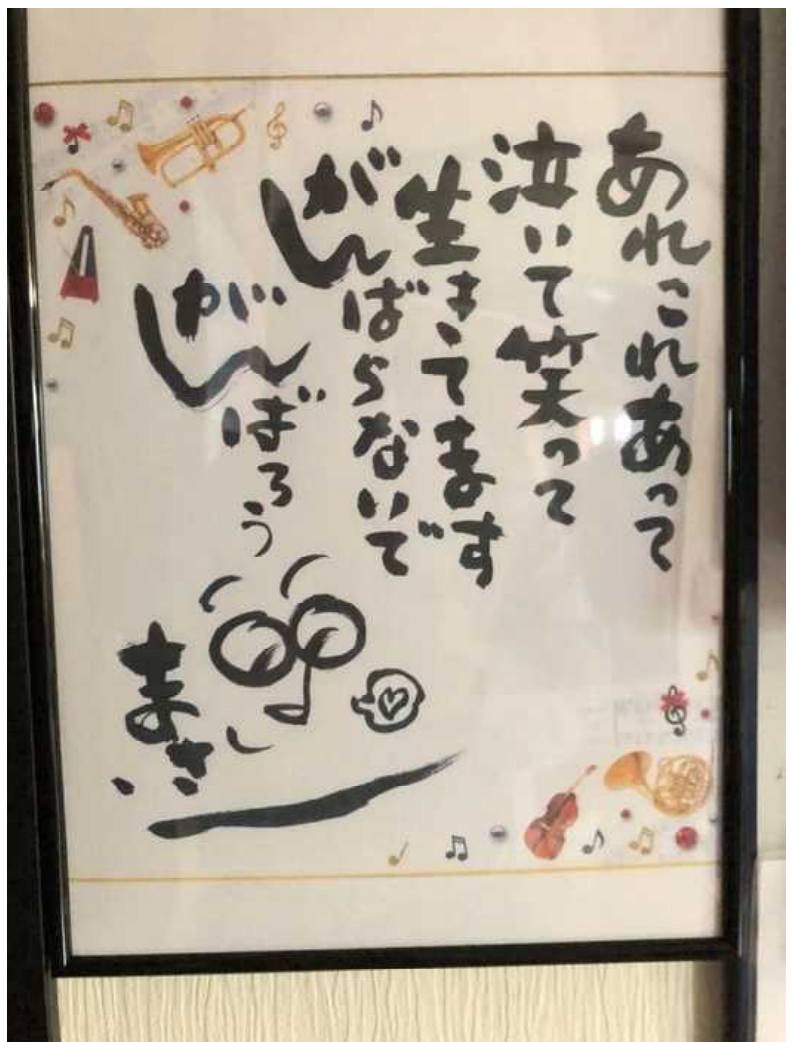 あれこれあって
泣いて笑って
生きてます
がんばらないで
がんばろう
まさ